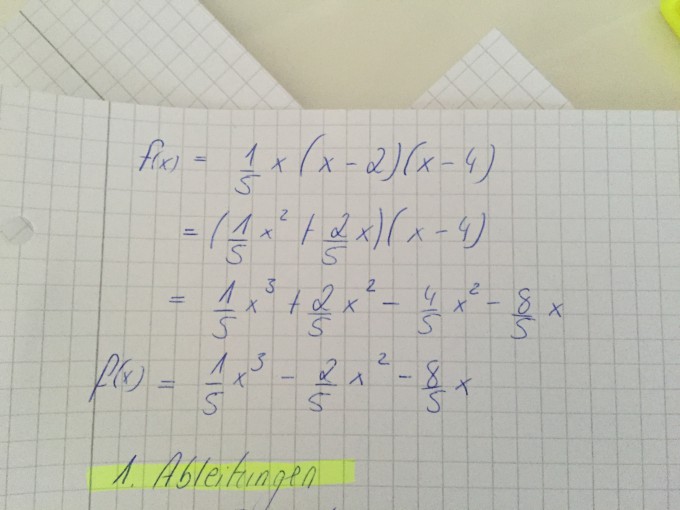 f(x) = 1/5 x (x - 2)(x - 4)
= (1/5 x² + 2/5 x)(x - 4)
= 1/5 x³ + 2/5 x² - 4/5 x² - 8/5 x
f(x) = 1/5 x³ - 2/5 x² - 8/5 x
1. Ableitungen